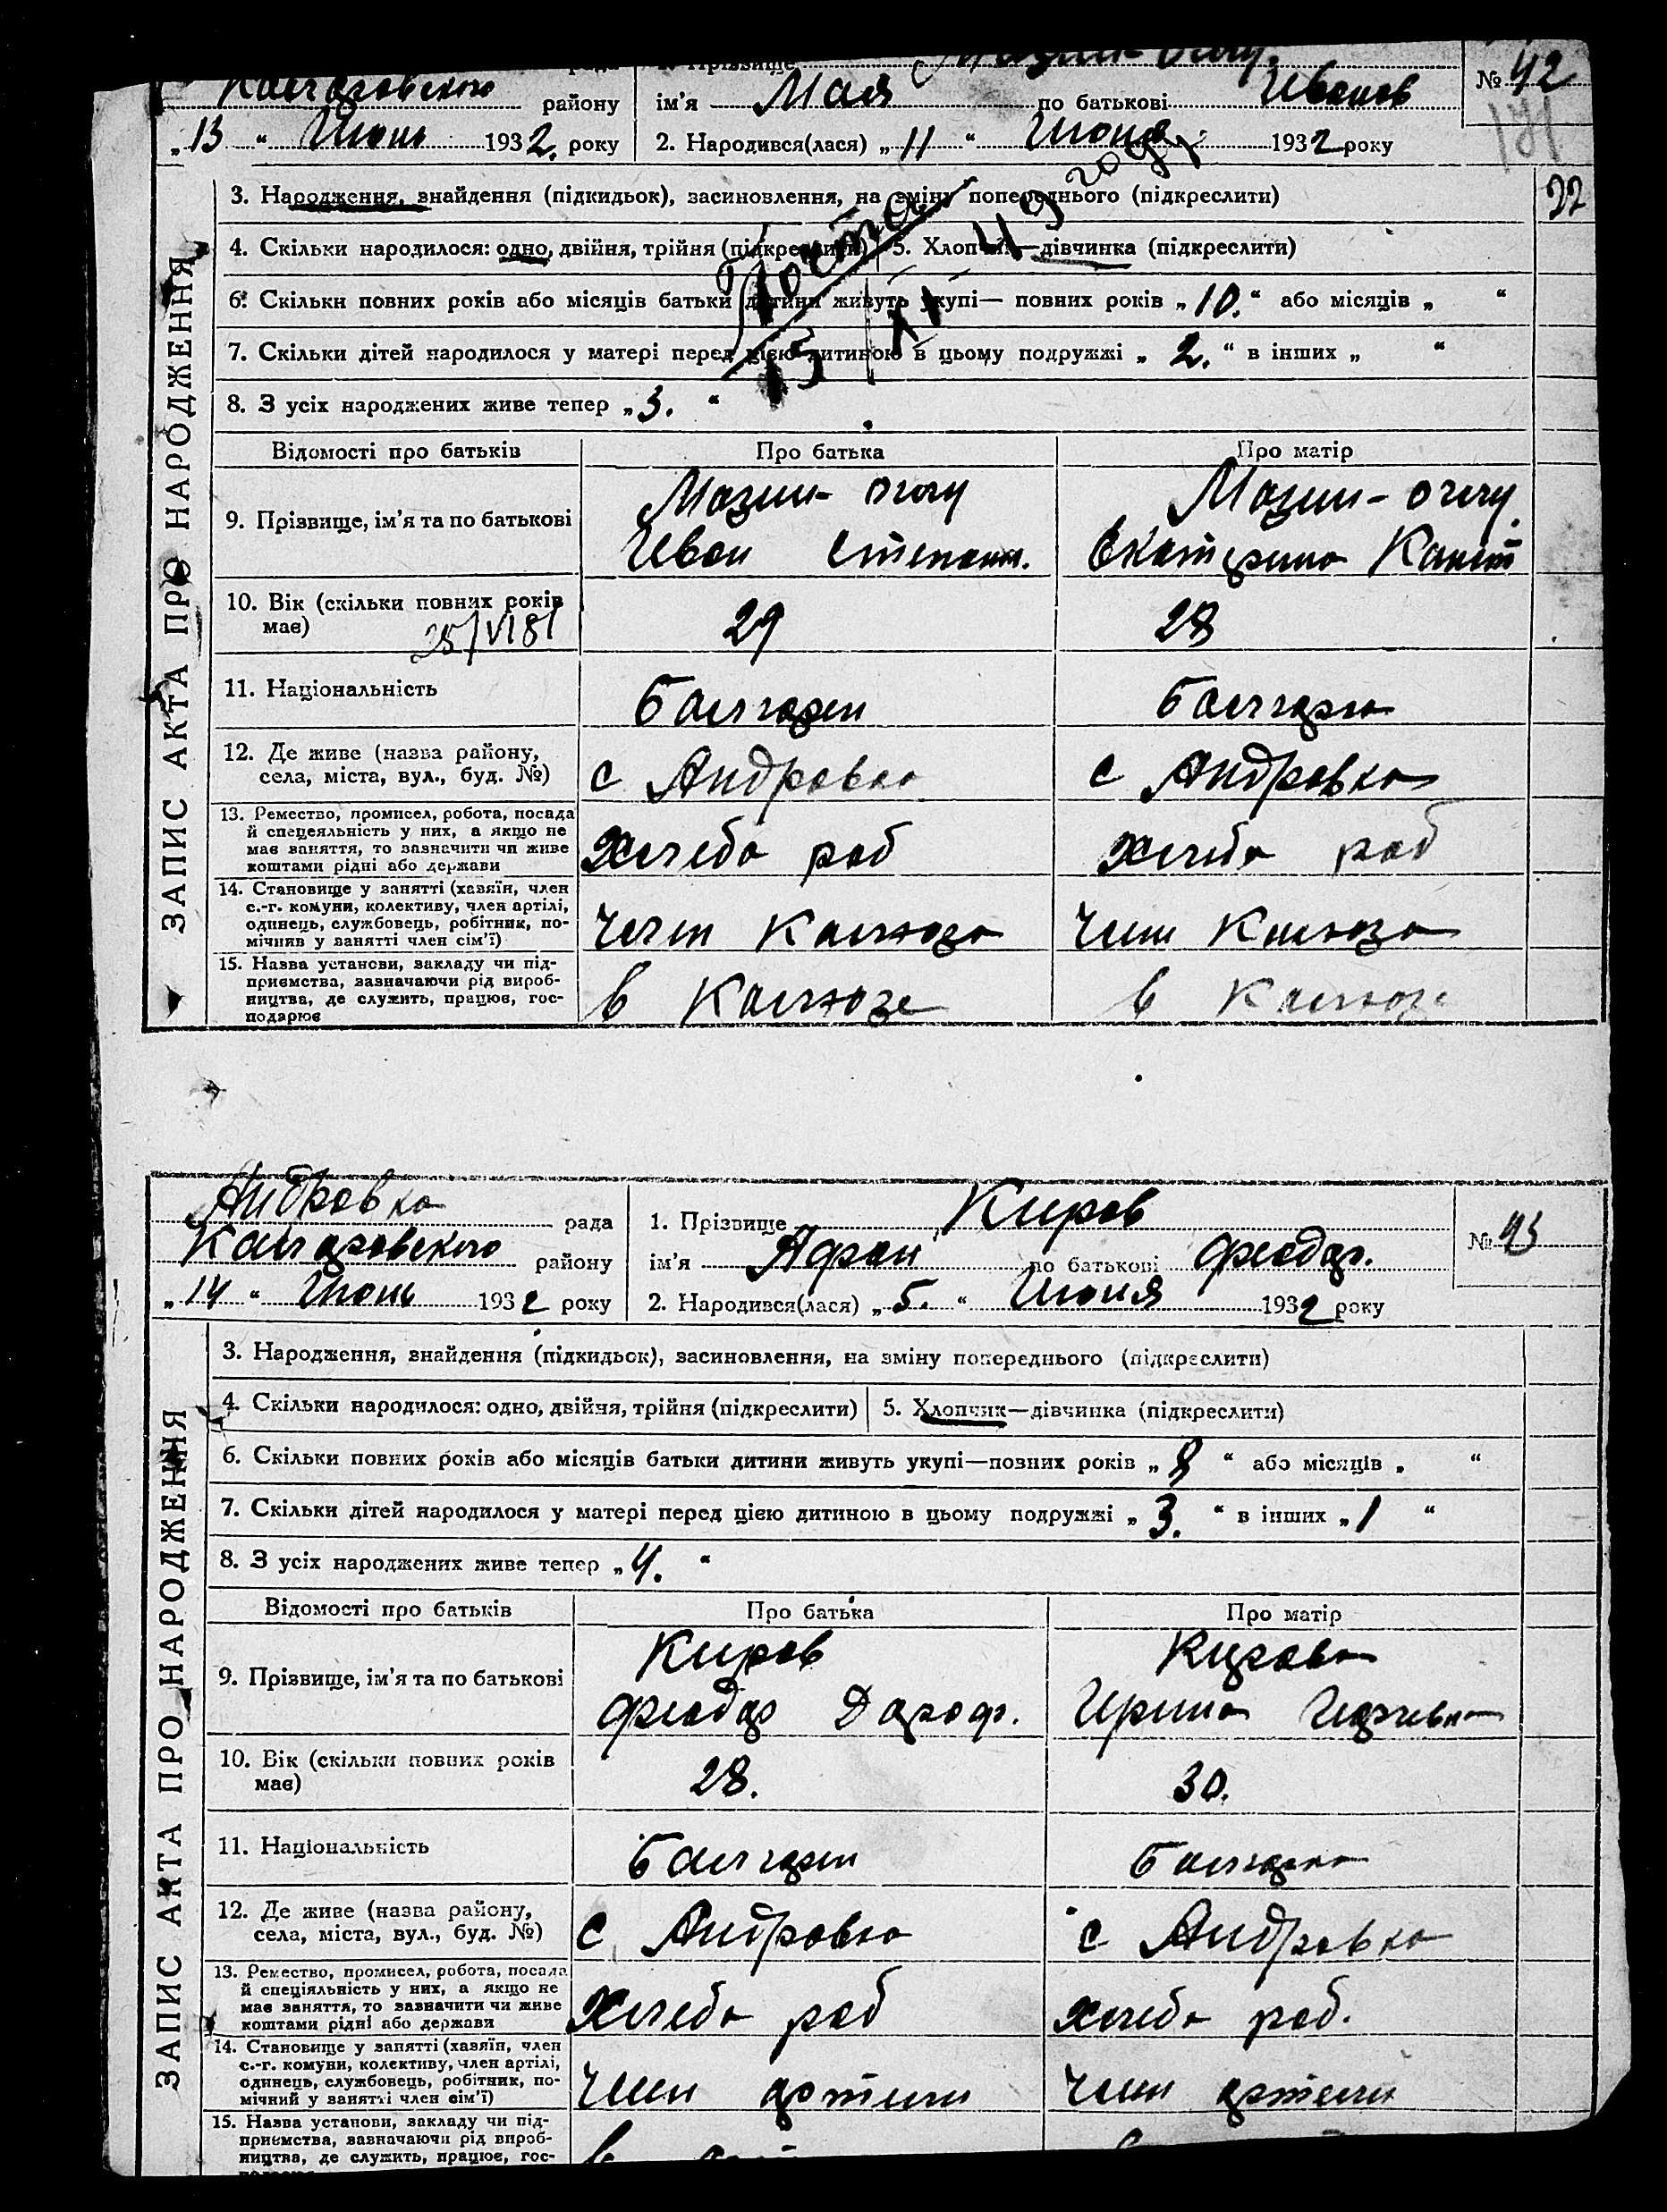 Колларовского району
„13“ Июнь 1932. року
ім'я Мая по батькові Иванов
2. Народився(лася) „11“ Июня 1932 року
№ 42
171
3. Народження, знайдення (підкидьок), засиновлення, на зміну попереднього (підкреслити)
22
4. Скільки народилося: одно, двійня, трійня (підкреслити) 5. Хлопчик—дівчинка (підкреслити)
6. Скільки повних років або місяців батьки дитини живуть укупі— повних років „10.“ або місяців „ “
7. Скільки дітей народилося у матері перед цією дитиною в цьому подружжі „2.“ в інших „ “
8. З усіх народжених живе тепер „3. “
ЗАПИС АКТА ПРО НАРОДЖЕННЯ
Відомості про батьків Про батька Про матір
9. Прізвище, ім'я та по батькові
Мазин-оглу
Иван Степан.
Мазин-оглу
Екатерина
10. Вік (скільки повних років має) 29 28
25/VI 81
11. Національність Болгарин Болгарка
12. Де живе (назва району,
села, міста, вул., буд. №)
с Андровка с Андровка
13. Ремество, промисел, робота, посада
й спецеяльність у них, а якщо не
має заняття, то зазначити чи живе
коштами рідні або держави
Хлебо роб Хлебо роб
14. Становище у занятті (хазяїн, член
с.-г. комуни, колективу, член артілі,
одинець, службовець, робітник, по-
мічнив у занятті член сім'ї)
Член Колхоза Член Колхоза
15. Назва установи, закладу чи під-
приємства, зазначаючи рід вироб-
ництва, де служить, працює, гос-
подарює
в Колхозе в Колхозе
Андровка рада
Колларовского району
„14“ Июнь 1932 року
1. Прізвище Киров
ім'я Афон по батькові Феодор.
2. Народився(лася) „5.“ Июня 1932 року
№ 43
3. Народження, знайдення (підкидьок), засиновлення, на зміну попереднього (підкреслити)
4. Скільки народилося: одно, двійня, трійня (підкреслити) 5. Хлопчик—дівчинка (підкреслити)
6. Скільки повних років або місяців батьки дитини живуть укупі—повних років „8“ або місяців „ “
7. Скільки дітей народилося у матері перед цією дитиною в цьому подружжі „3.“ в інших „1“
8. З усіх народжених живе тепер „4.“
ЗАПИС АКТА ПРО НАРОДЖЕННЯ
Відомості про батьків Про батька Про матір
9. Прізвище, ім'я та по батькові
Киров
Феодор Дороф.
Кирова
Ирина
10. Вік (скільки повних років
має)
28. 30.
11. Національність Болгарин Болгарка
12. Де живе (назва району,
села, міста, вул., буд. №)
с Андровка с Андровка
13. Ремество, промисел, робота, посада
й спеціяльність у них, а якщо не
має заняття, то зазначити чи живе
коштами рідні або держави
Хлебо роб Хлебо роб.
14. Становище у занятті (хазяїн, член
с.-г. комуни, колективу, член артілі,
одинець, службовець, робітник, по-
мічний у занятті член сім'ї)
Член артели Член артели
15. Назва установи, закладу чи під-
приємства, зазначаючи рід вироб-
ництва, де служить, працює, гос-